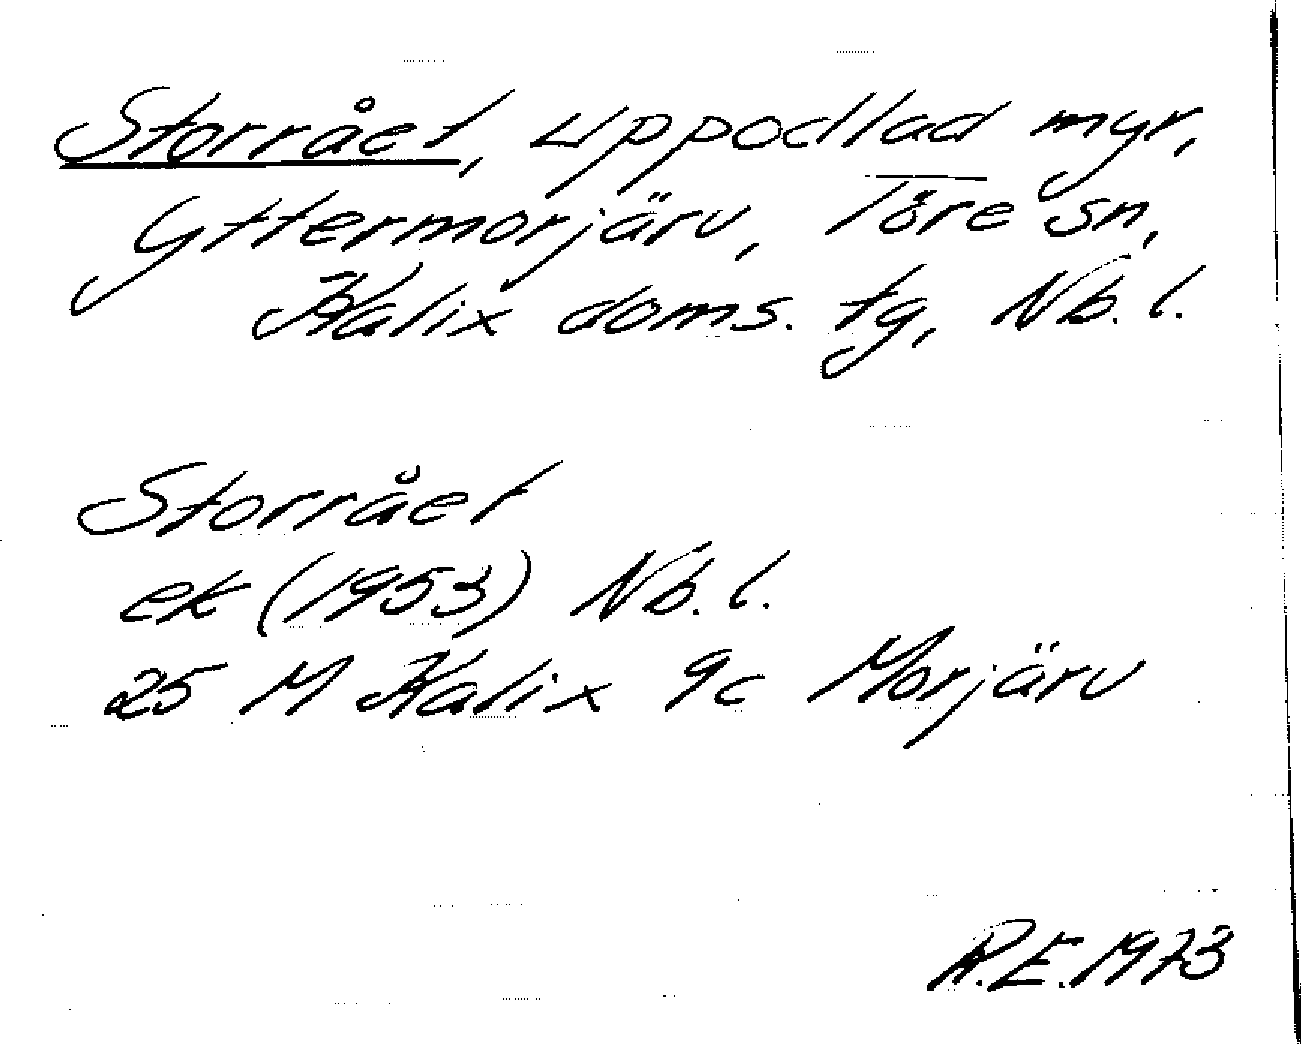 Storrået, uppodlad myr,
Yttermorjärv, Töre sn,
Kalix doms. tg, Nb. l.
Storrået
ek (1953) Nb. l.
25 M Kalix 9c Morjärv
R.E. 1973